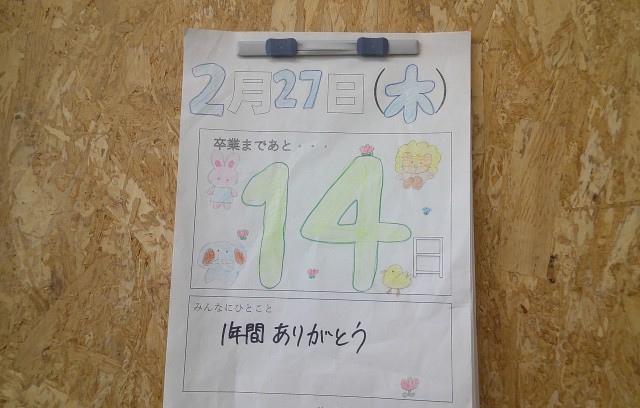 2月27日(木)
卒業まであと・・・
14日
みんなにひとこと
1年間 ありがとう